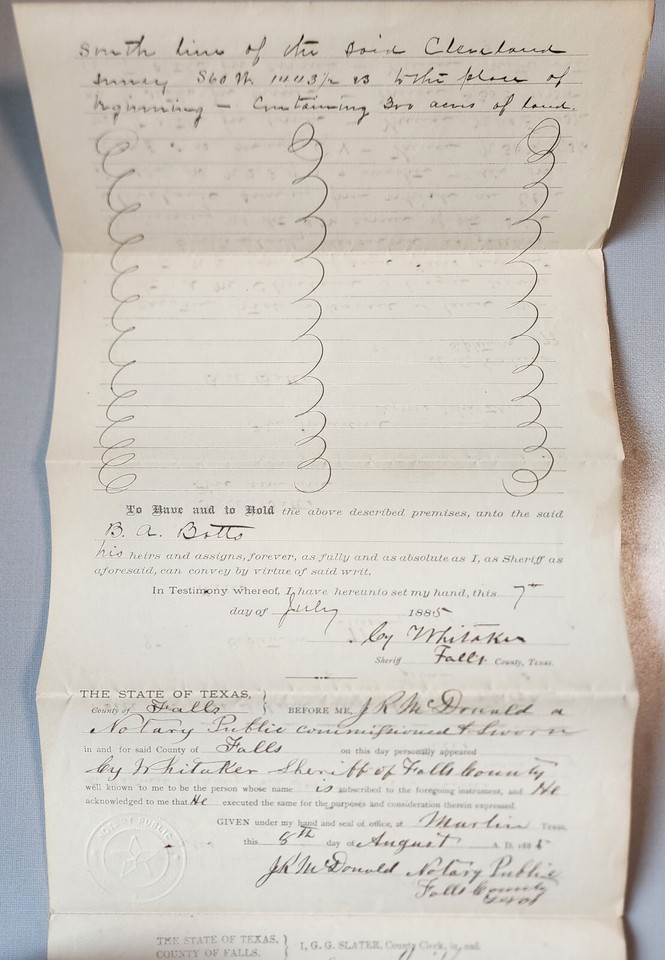 South line of the said Cleveland
survey S60 W 1443½ vs to the place of
beginning — Containing 300 acres of land.
To Have and to Hold the above described premises, unto the said
B. A. Botts
his heirs and assigns, forever, as fully and as absolute as I, as Sheriff as
aforesaid, can convey by virtue of said writ.
In Testimony whereof, I have hereunto set my hand, this 7th
day of July 1885
Cy Whitaker
Sheriff Falls County, Texas.
THE STATE OF TEXAS,
County of Falls } BEFORE ME, J R McDonald a
Notary Public commissioned & Sworn
in and for said County of Falls on this day personally appeared
Cy Whitaker Sheriff of Falls County
well known to me to be the person whose name is subscribed to the foregoing instrument, and He
acknowledged to me that He executed the same for the purposes and consideration therein expressed.
GIVEN under my hand and seal of office, at Marlin Texas,
this 8th day of August A. D. 1885
NOTARY PUBLIC
J R McDonald Notary Public
Falls County
Texas
THE STATE OF TEXAS,
COUNTY OF FALLS. } I, G. G. SLATER, County Clerk, in and